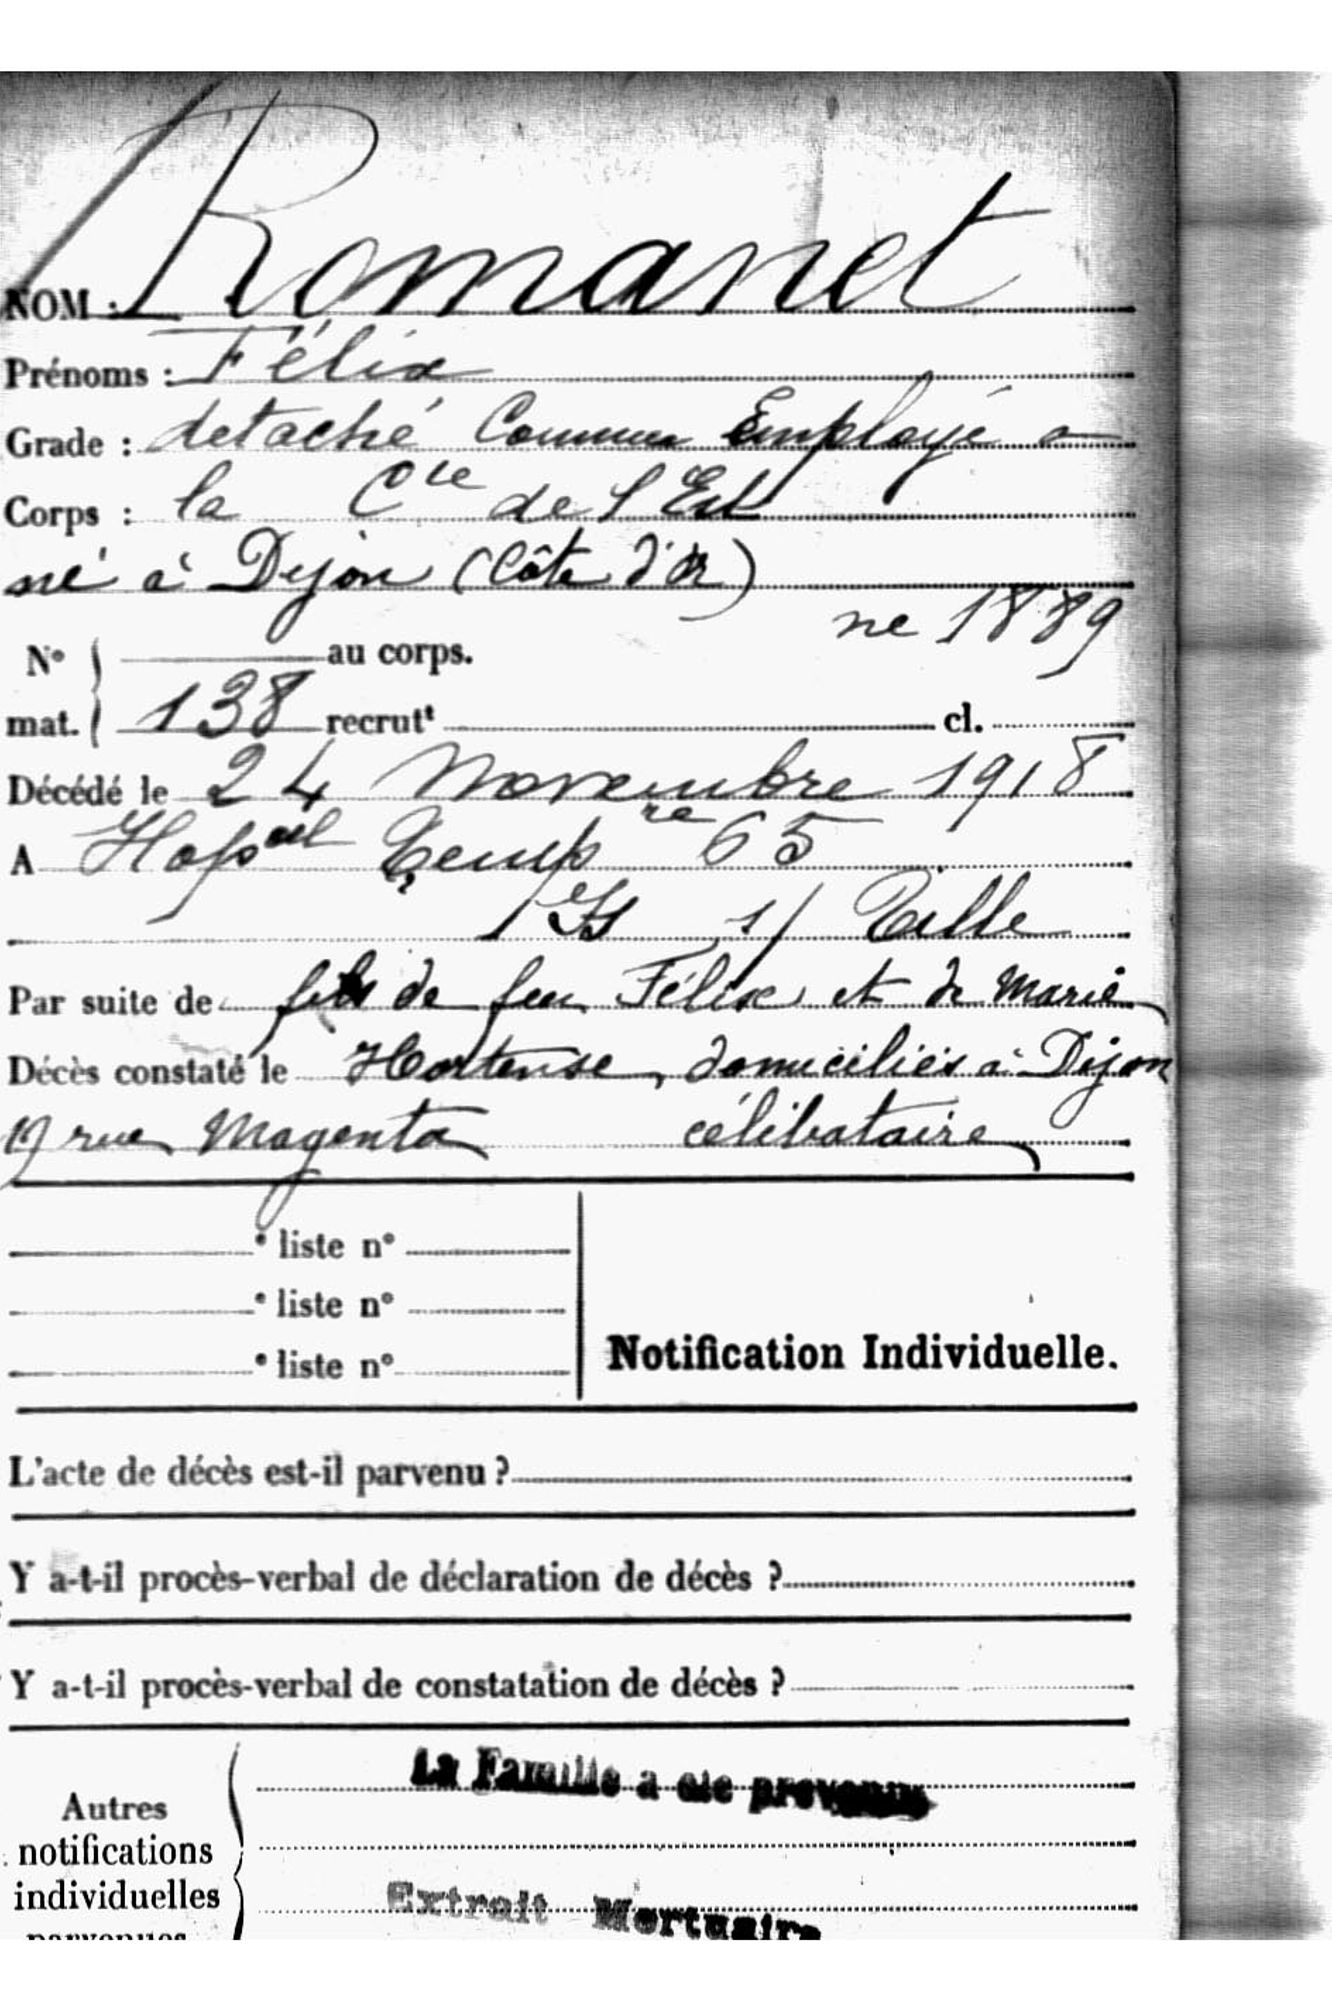 NOM : Romanet
Prénoms : Félix
Grade : detaché Comme Employé a
Corps : la Cie de l'Est
né à Dijon (Côte d'Or)
né 1889
N° au corps.
mat. 138 recrutt cl.
Décédé le 24 Novembre 1918
A Hopal Tempre 65
Is s/ Tille
Par suite de fils de feu Félix et de Marie
Décès constaté le Hortense, domiciliés à Dijon
rue Magenta célibataire
liste n°
liste n°
liste n°
Notification Individuelle.
L'acte de décès est-il parvenu ?
Y a-t-il procès-verbal de déclaration de décès ?
Y a-t-il procès-verbal de constatation de décès ?
La Famille a été prévenue
Autres
notifications
individuelles
Extrait Mortuaire
parvenues